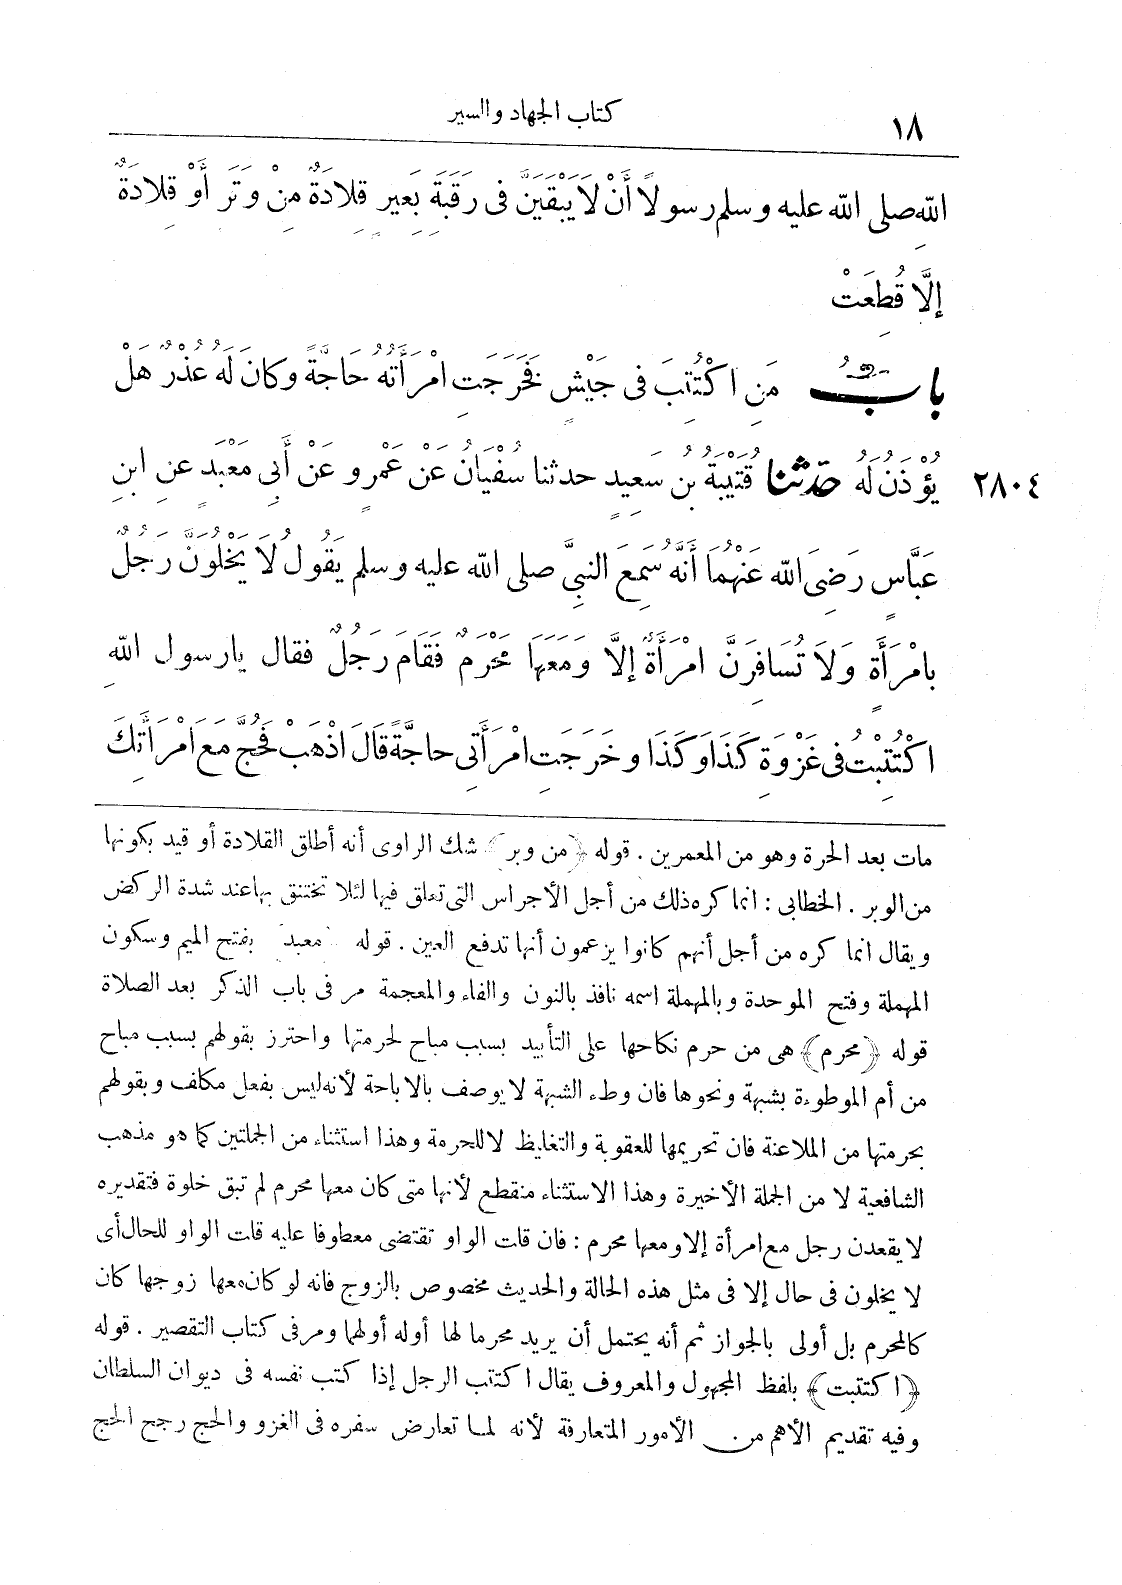 ١٨
كتاب الجهاد والسير
اللهِ صلى الله عليه وسلم رسولاً أَنْ لَا يَبْقَيَنَّ فى رَقَبَةِ بَعِيرٍ قِلَادَةٌ مِنْ وَتَرٍ أَوْ قِلَادَةٌ
إِلَّا قُطِعَتْ
بابُ مَنِ اكْتُتِبَ فى جَيْشٍ فَخَرَجَتِ امْرَأَتُهُ حَاجَّةً وَكَانَ لَهُ عُذْرٌ هَلْ
٢٨٠٤ يُؤْذَنُ لَهُ حَدَّثَنَا قُتَيْبَةُ بن سَعِيدٍ حدثنا سُفْيَانُ عَنْ عَمْرٍو عَنْ أَبِى مَعْبَدٍ عَنِ ابْنِ
عَبَّاسٍ رَضِىَ اللّه عَنْهُمَا أَنَّهُ سَمِعَ النبىَّ صلى الله عليه وسلم يَقُولُ لَا يَخْلُوَنَّ رَجُلٌ
بِامْرَأَةٍ وَلَا تُسَافِرَنَّ امْرَأَةٌ إِلَّا وَمَعَهَا مَحْرَمٌ فَقَامَ رَجُلٌ فقال يارسول اللهِ
اكْتُتِبْتُ فى غَزْوَةِ كَذَا وَكَذَا وَخَرَجَتِ امْرَأَتِى حاجَّةً قَالَ اذْهَبْ فَحُجَّ مَعَ امْرَأَتِكَ
مات بعد الحرة وهو من المعمرين . قوله ﴿من وبر﴾ شك الراوى أنه أطلق القلادة أو قيد بكونها
من الوبر . الخطابى : انما كره ذلك من أجل الأجراس التى تعلق فيها لئلا تختنق بها عند شدة الركض
ويقال انما كره من أجل أنهم كانوا يزعمون أنها تدفع العين . قوله ﴿معبد﴾ بفتح الميم وسكون
المهملة وفتح الموحدة وبالمهملة اسمه نافذ بالنون والفاء والمعجمة مر فى باب الذكر بعد الصلاة
قوله ﴿محرم﴾ هى من حرم نكاحها على التأبيد بسبب مباح لحرمتها واحترز بقولهم بسبب مباح
من أم الموطوءة بشبهة ونحوها فان وطء الشبهة لا يوصف بالاباحة لأنه ليس بفعل مكلف وبقولهم
بحرمتها من الملاعنة فان تحريمها للعقوبة والتغليظ لا للحرمة وهذا استثناء من الجملتين كما هو مذهب
الشافعية لا من الجملة الأخيرة وهذا الاستثناء منقطع لأنها متى كان معها محرم لم تبق خلوة فتقديره
لا يقعدن رجل مع امرأة إلا ومعها محرم : فان قلت الواو تقتضى معطوفا عليه قلت الواو للحال أى
لا يخلون فى حال إلا فى مثل هذه الحالة والحديث مخصوص بالزوج فانه لو كان معها زوجها كان
كالمحرم بل أولى بالجواز ثم أنه يحتمل أن يريد محرما لها أوله أولهما ومر فى كتاب التقصير . قوله
﴿اكتتبت﴾ بلفظ المجهول والمعروف يقال اكتتب الرجل إذا كتب نفسه فى ديوان السلطان
وفيه تقديم الأهم من الأمور المتعارفة لأنه لما تعارض سفره فى الغزو والحج رجح الحج